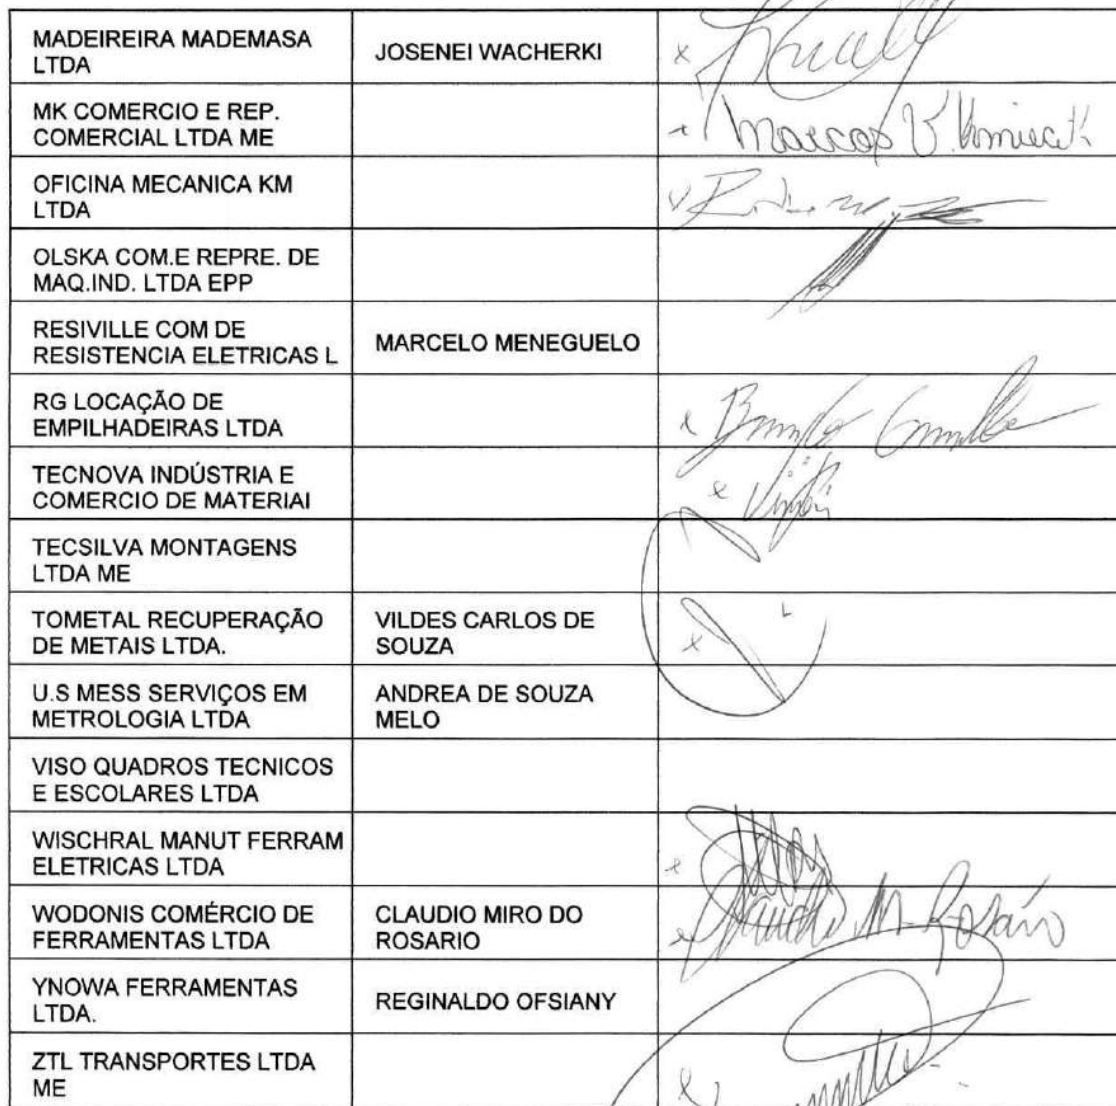 MADEIREIRA MADEMASA
LTDA
JOSENEI WACHERKI
MK COMERCIO E REP.
COMERCIAL LTDA ME
Marcos V.
OFICINA MECANICA KM
LTDA
OLSKA COM.E REPRE. DE
MAQ.IND. LTDA EPP
RESIVILLE COM DE
RESISTENCIA ELETRICAS L
MARCELO MENEGUELO
RG LOCAÇÃO DE
EMPILHADEIRAS LTDA
TECNOVA INDÚSTRIA E
COMERCIO DE MATERIAI
TECSILVA MONTAGENS
LTDA ME
TOMETAL RECUPERAÇÃO
DE METAIS LTDA.
VILDES CARLOS DE
SOUZA
U.S MESS SERVIÇOS EM
METROLOGIA LTDA
ANDREA DE SOUZA
MELO
VISO QUADROS TECNICOS
E ESCOLARES LTDA
WISCHRAL MANUT FERRAM
ELETRICAS LTDA
WODONIS COMÉRCIO DE
FERRAMENTAS LTDA
CLAUDIO MIRO DO
ROSARIO
Claudio M. Rosário
YNOWA FERRAMENTAS
LTDA.
REGINALDO OFSIANY
ZTL TRANSPORTES LTDA
ME